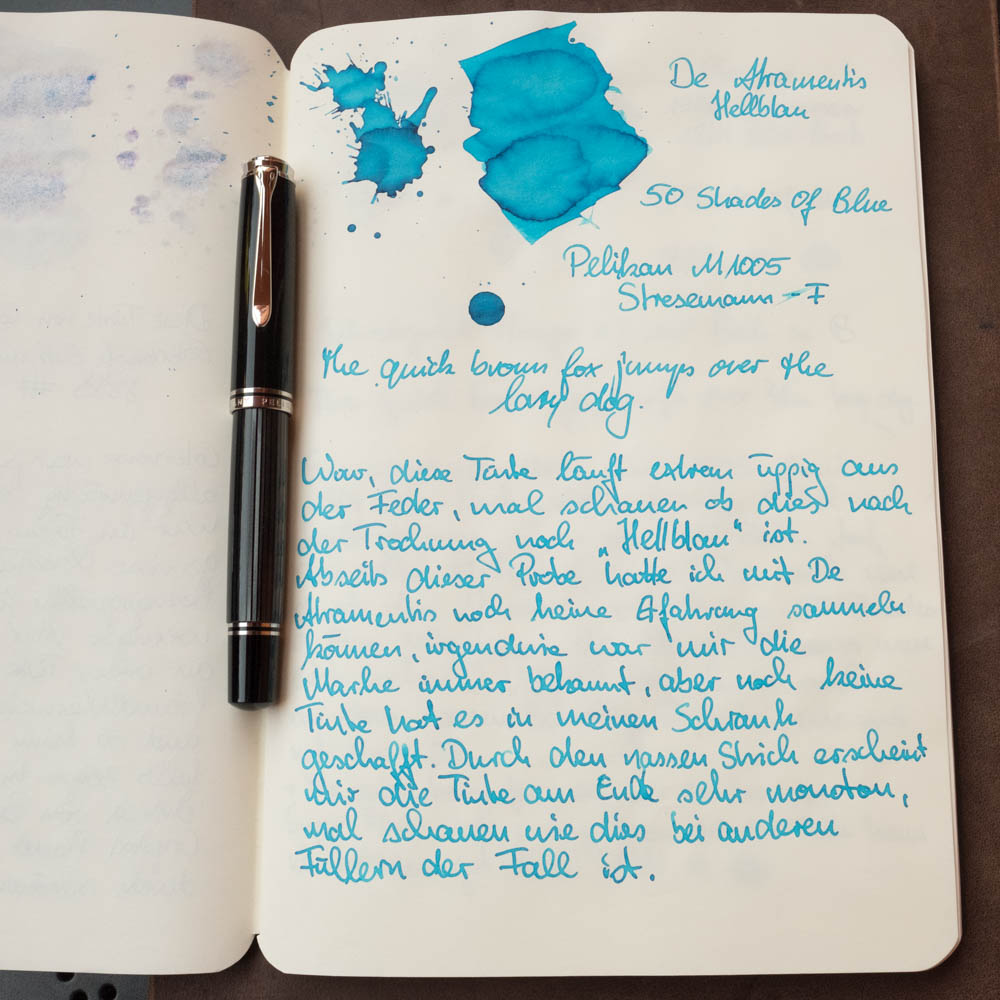 De Atramentis
Hellblau
50 Shades Of Blue
Pelikan M1005
Stresemann - F
the quick brown fox jumps over the
lazy dog.
Wow, diese Tinte läuft extrem üppig aus
der Feder, mal schauen ob dies nach
der Trocknung noch „Hellblau" ist.
Abseits dieser Probe hatte ich mit De
Atramentis noch keine Erfahrung sammeln
können, irgendwie war mir die
Marke immer bekannt, aber noch keine
Tinte hat es in meinen Schrank
geschafft. Durch den nassen Strich erscheint
mir die Tinte am Ende sehr monoton,
mal schauen wie dies bei anderen
Füllern der Fall ist.